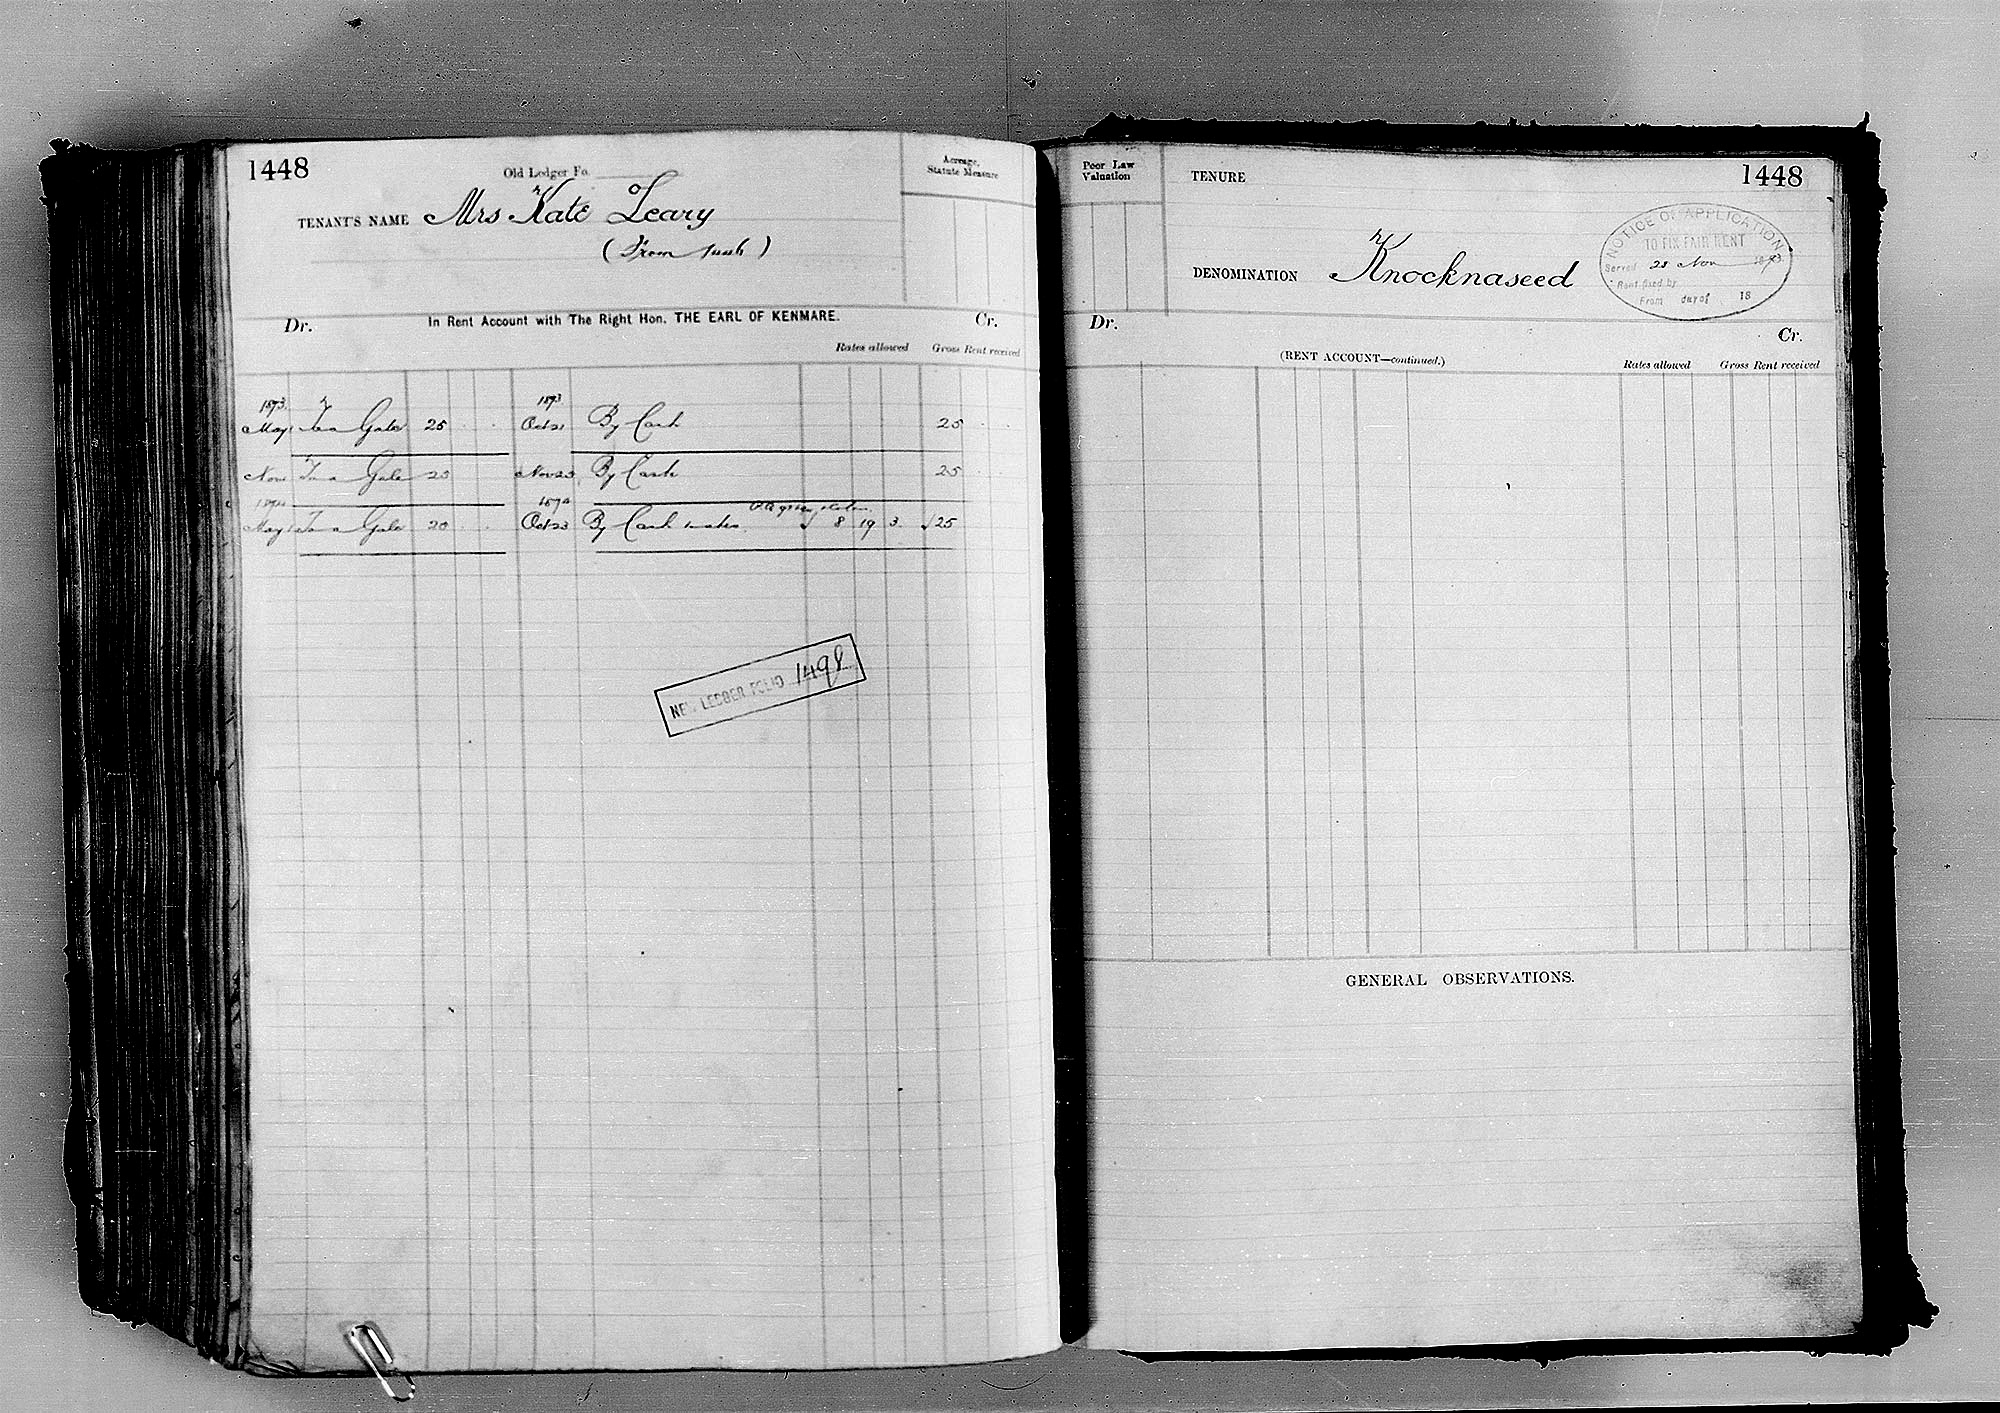 1448
Old Ledger Fo.
Acreage,
Statute Measure
TENANT'S NAME Mrs Kate Leary
(From )
Dr. In Rent Account with The Right Hon. THE EARL OF KENMARE. Cr.
Rates allowed Gross Rent received
1893 1893
May 1 To a Gale 25 Oct 21 By Cash 25
Nov To a Gale 25 Nov 23 By Cash 25
1894 1894
May 1 To a Gale 25 Oct 23 By Cash 8 19 3 25
NEW LEDGER FOLIO 1498
Poor Law
Valuation
TENURE
1448
DENOMINATION Knocknaseed
NOTICE OF APPLICATION
TO FIX FAIR RENT
Served 23 Nov 1893
Rent fixed by
From day of 18
Dr. Cr.
(RENT ACCOUNT—continued.)
Rates allowed Gross Rent received
GENERAL OBSERVATIONS.